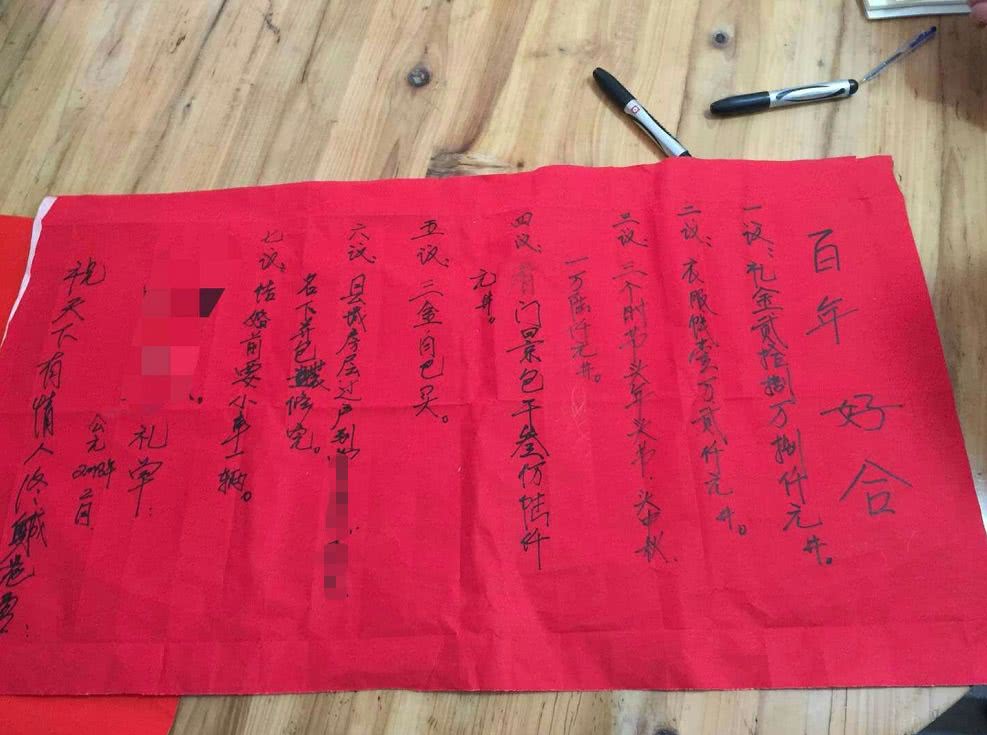 百年好合
一议：礼金贰拾捌万捌仟元井。
二议：衣服钱壹万贰仟元井。
三议：三个时节头年头节.头中秋.
一万陆仟元井。
四议：门景包干叁份陆仟
元井。
五议：三金自巴买。
六议：县城房屋过户到
名下并包装修完。
七议：结婚前要小车一辆。
礼单：
公元2018年二月
祝天下有情人终